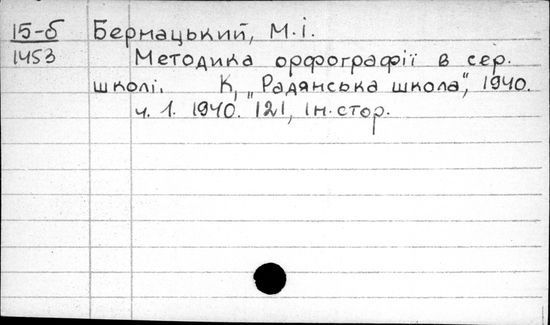 15-б Бернацький, М.і.
1453 Методика орфографії в сер.
школі. К, „Радянська школа", 1940.
ч. 1. 1940. 121, ін.стор.